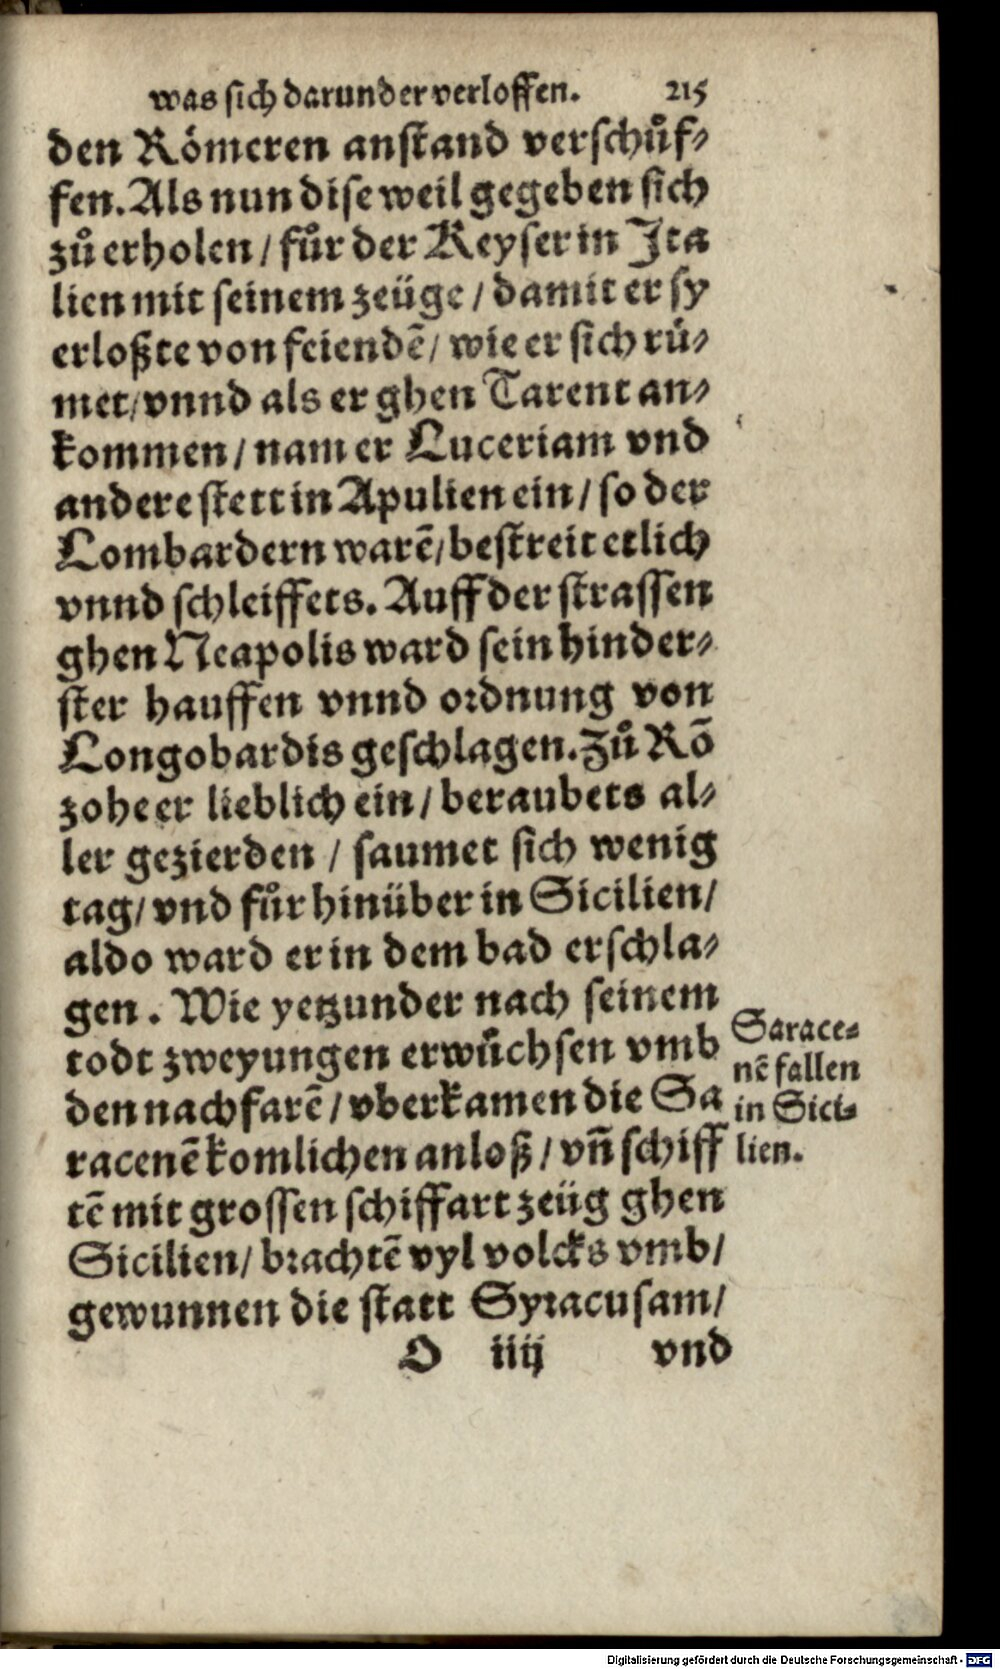 was sich darunder verloffen. 215
den Römeren anstand verschůf⸗
fen. Als nun dise weil gegeben sich
zů erholen / fůr der Keyser in Jta
lien mit seinem zeüge / damit er sy
erloßte von feiendẽ / wie er sich rů⸗
met / vnnd als er ghen Tarent an⸗
kommen / nam er Luceriam vnd
andere stett in Apulien ein / so der
Lombardern warẽ / bestreit etlich
vnnd schleiffets. Auff der strassen
ghen Neapolis ward sein hinder⸗
ster hauffen vnnd ordnung von
Longobardis geschlagen. Zů Rõ
zohe er lieblich ein / beraubets al⸗
ler gezierden / saumet sich wenig
tag / vnd fůr hinüber in Sicilien /
aldo ward er in dem bad erschla⸗
gen. Wie yetzunder nach seinem
todt zweyungen erwůchsen vmb
den nachfarẽ / vberkamen die Sa
racenẽ komlichen anloß / vñ schiff
tẽ mit grossen schiffart zeüg ghen
Sicilien / brachtẽ vyl volcks vmb /
gewunnen die statt Syracusam /
O iiij vnd
Sarace⸗
nẽ fallen
in Sici⸗
lien.
Digitalisierung gefördert durch die Deutsche Forschungsgemeinschaft - DFG